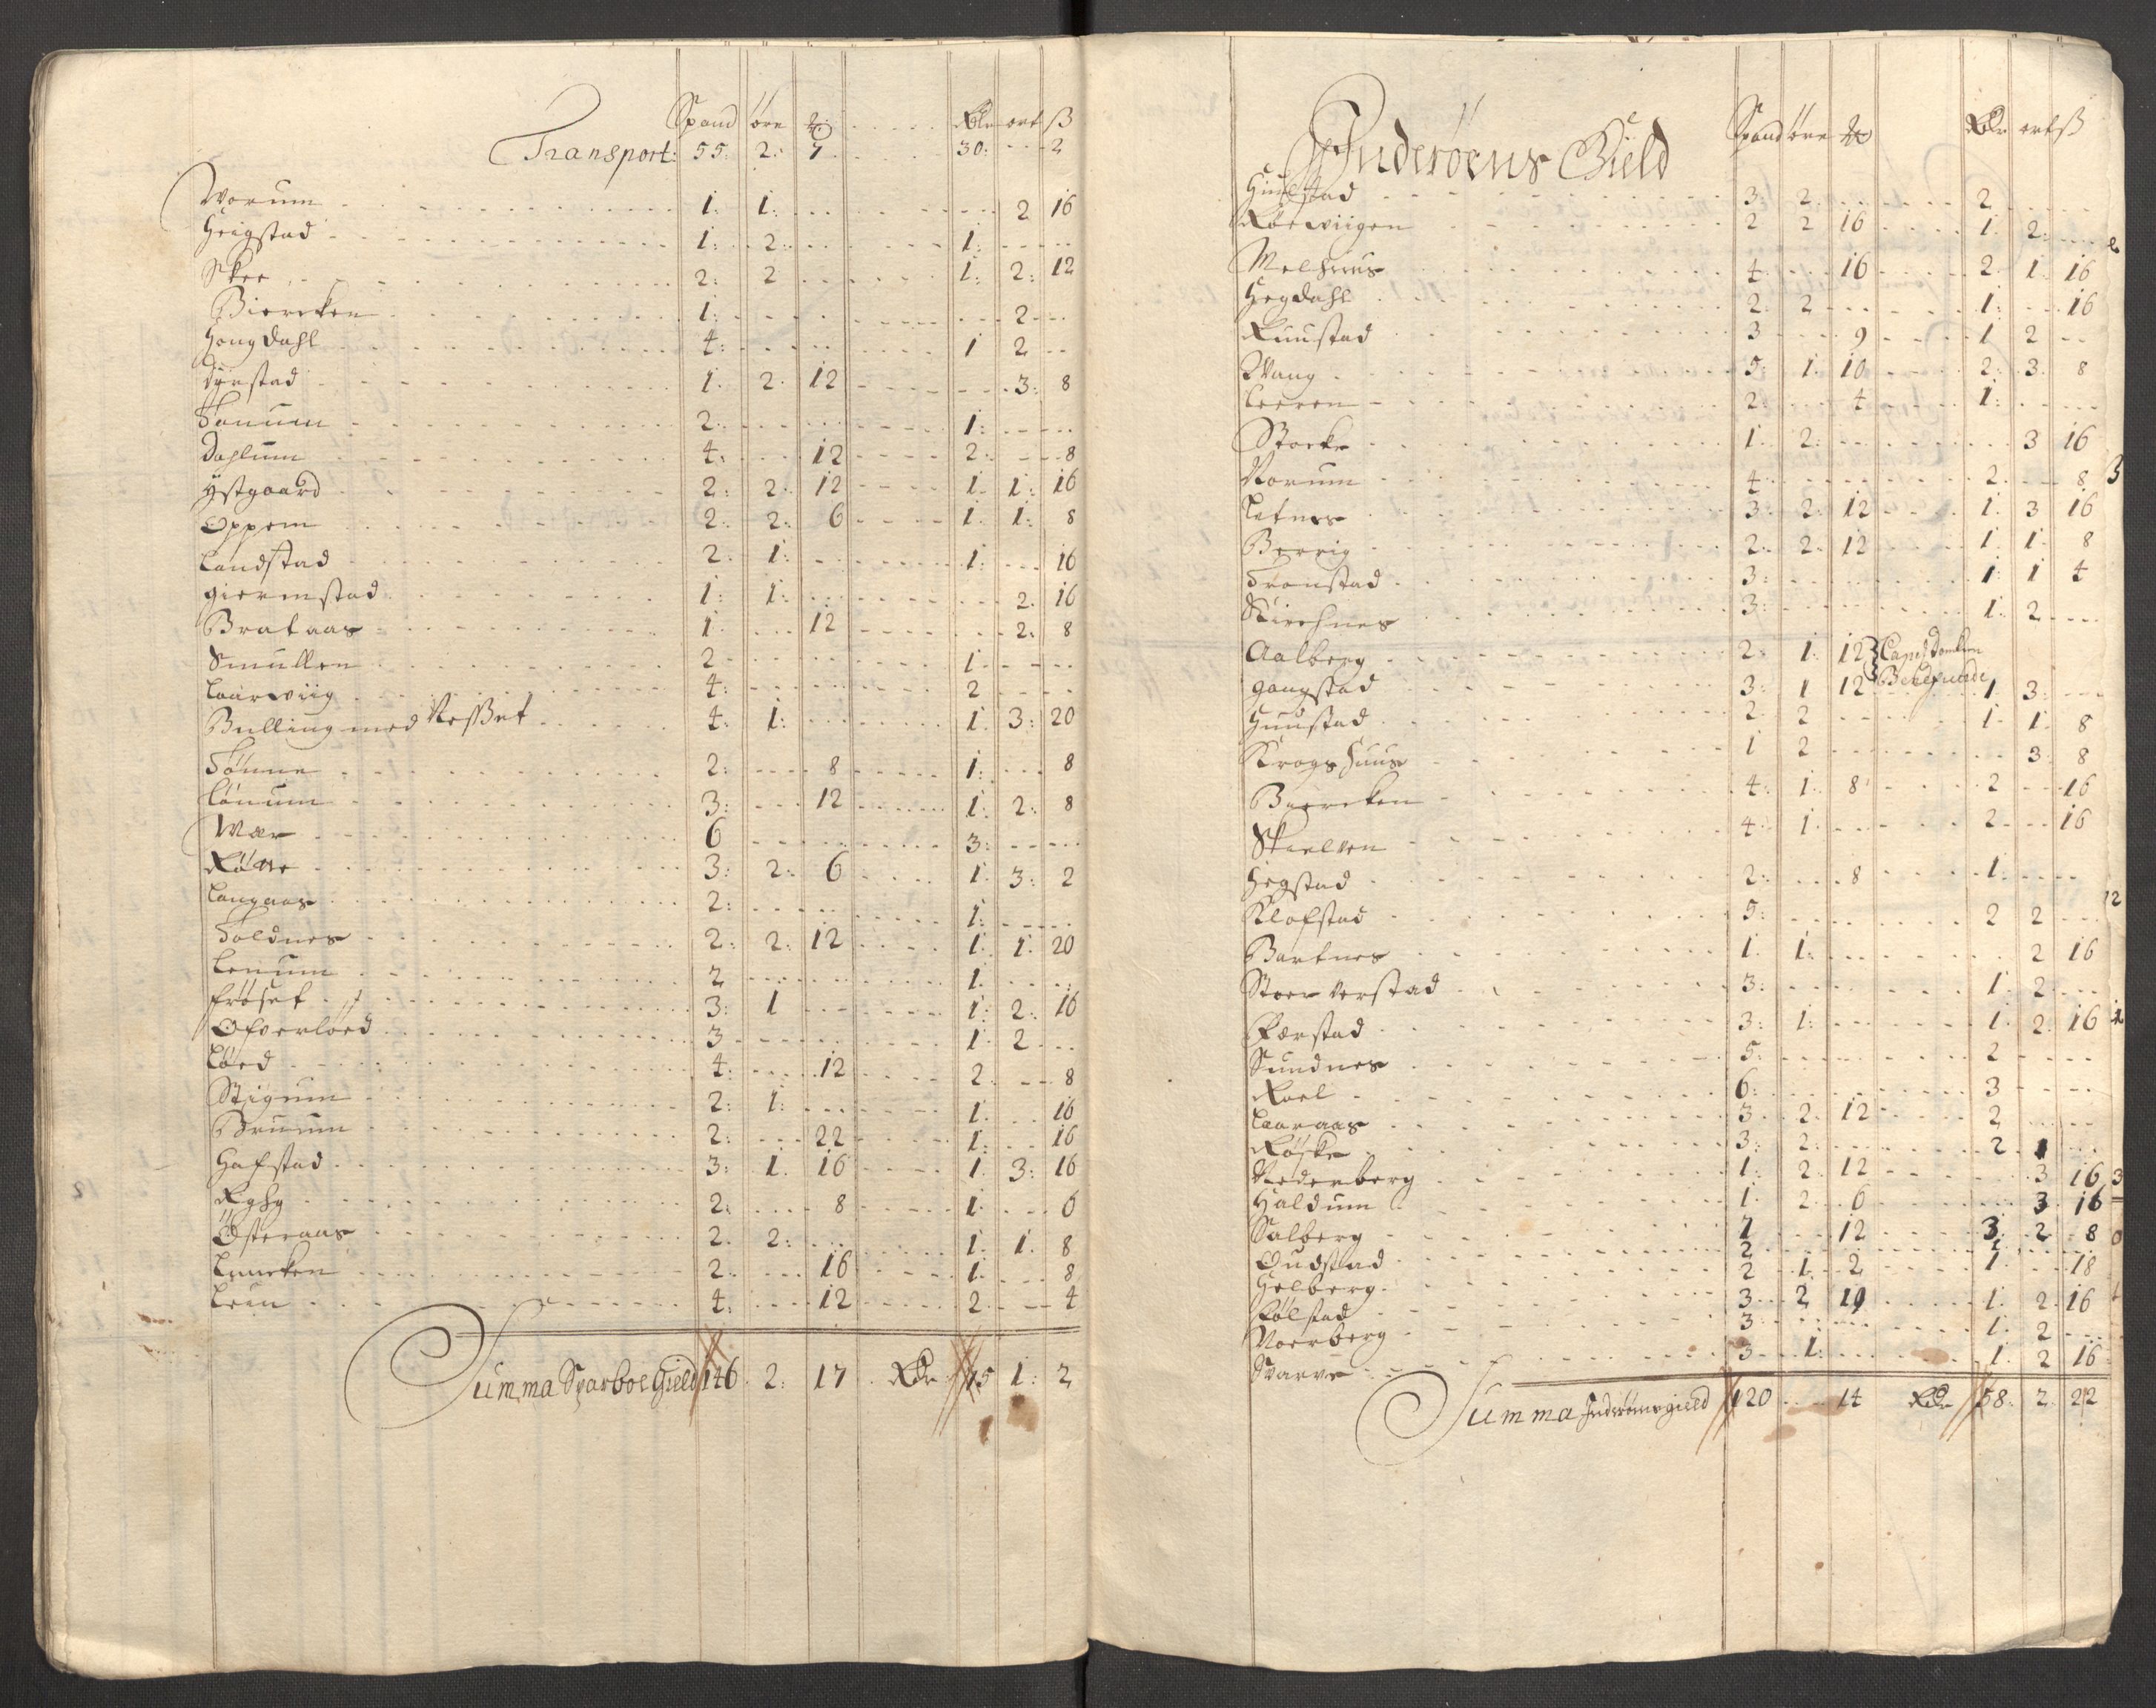 Spand øre ... Rdr ort ß
Transport: 55: 2: 7 30: 2
Worum 1: 1: 2 16
Heigstad 1: 2: 1:
Skee 2: 2 1: 2: 12
Biercken 1: 2
Hongdahl 4: 1 2
Dyrstad 1: 2: 12 3: 8
Tonum 2: 1:
Dahlum 4: 12 2: 8
Ystgaard 2: 2: 12 1: 1: 16
Oppem 2: 2: 6 1: 1: 8
Landstad 2: 1: 1: 16
Giermstad 1: 1: 2: 16
Brataas 1: 12 2: 8
Smullen 2 1
Laarwiig 4: 2
Bulling med Neßet 4: 1: 1: 3: 20
Tönne 2: 8 1: 8
Lönum 3: 12 1: 2: 8
Wær 6 3:
Røtte 3: 2: 6 1: 3: 2
Langaas 2: 1:
Toldnes 2: 2: 12 1: 1: 20
Lenum 2 1:
Frøset 3: 1 1: 2: 16
Ofverlöed 3 1: 2
Löed 4: 12 2: 8
Stigum 2: 1: 1: 16
Bruum 2: 22 1: 16
Hafstad 3: 1: 16 1: 3: 16
Rghg 2: 8 1: 6
Østeraas 2: 2: 1: 1: 8
Luncken 2: 16 1: 8
Leün 4: 12 2: 4
Summa Sparboe Gield 146 2: 17 Rdr 75 1: 2
Inderøens Gield
Spand øre ... Rdr ort ß
Hiulstad 3 2 2
Röewiigen 2 2 16 1: 2:
Melhuus 4 16 2: 1: 16
Hegdahl 2: 2 1: 16
Ruustad 3 9 1 2
Wang 5: 1: 10 2: 3: 8
Leeren 2: 4 1:
Storke 1: 2: 3 16
Norum 4 2: 8
Letnes 3: 2: 12 1: 3 16
Berrig 2: 2: 12 1 1: 8
Tronstad 3: 1: 1 4
Kirchnes 3: 1: 2
Aalberg 2: 1: 12 Capt: Domken
Gangstad 3: 1 12 Beneficerede 1 3:
Huustad 2: 2 1: 1: 8
Krogshuus 1 2 3: 8
Biercken 4: 1: 8 2 16
Skielven 4: 1: 2 16
Hegstad 2: 8 1:
Klofstad 5: 2 2
Bartnes 1: 1: 2 16
Stoer Verstad 3: 1: 2
Færstad 3: 1: 1: 2: 16
Sundnes 5: 2
Roel 6: 3
Laaraas 3 2: 12 2
Røske 3: 2: 2 1
Nederberg 1: 2: 12 3 16
Haldum 1: 2: 6 3 16
Salberg 7 12 3: 2 8
Oudstad 2 1
Helberg 2 1 2 1 18
Følstad 3 2 19 1: 2: 16
Noerberg 3 1: 2
Svarve 3 1: 1: 2 16
Summa Inderøens gield 120 14 Rdr 58: 2: 22